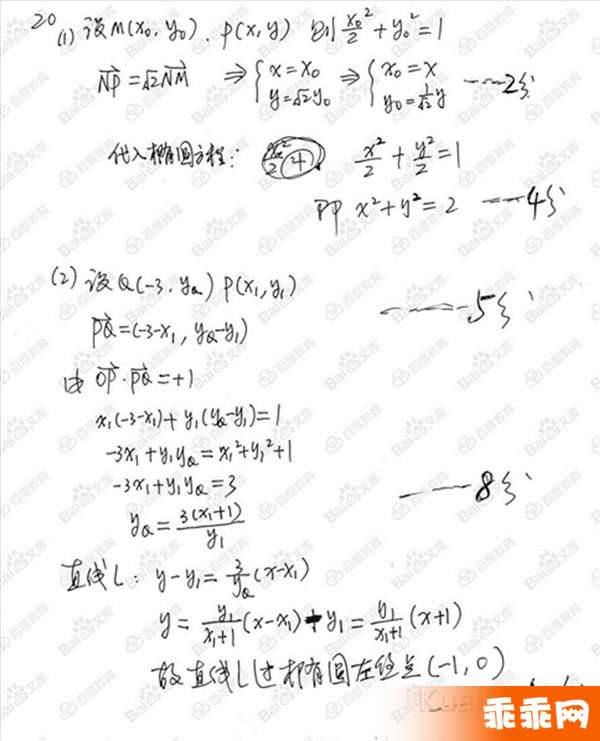 20
(1) 设M(x₀, y₀). P(x, y) 则 x₀²/2 + y₀² = 1
NP = √2 NM ⇒ { x = x₀ y = √2y₀ ⇒ { x₀ = x y₀ = 1/√2 y ——2分
代入椭圆方程: x²/2 + y²/2 = 1
即 x² + y² = 2 ——4分
(2) 设Q(-3, y_Q) P(x₁, y₁) ——5分
PQ = (-3-x₁, y_Q-y₁)
由 OP·PQ = +1
x₁(-3-x₁) + y₁(y_Q-y₁) = 1
-3x₁ + y₁y_Q = x₁² + y₁² + 1
-3x₁ + y₁y_Q = 3 ——8分
y_Q = 3(x₁+1)/y₁
直线l: y - y₁ = 3/y_Q (x-x₁)
y = y₁/(x₁+1) (x-x₁) + y₁ = y₁/(x₁+1) (x+1)
故直线l过椭圆左焦点(-1, 0)
乖乖网